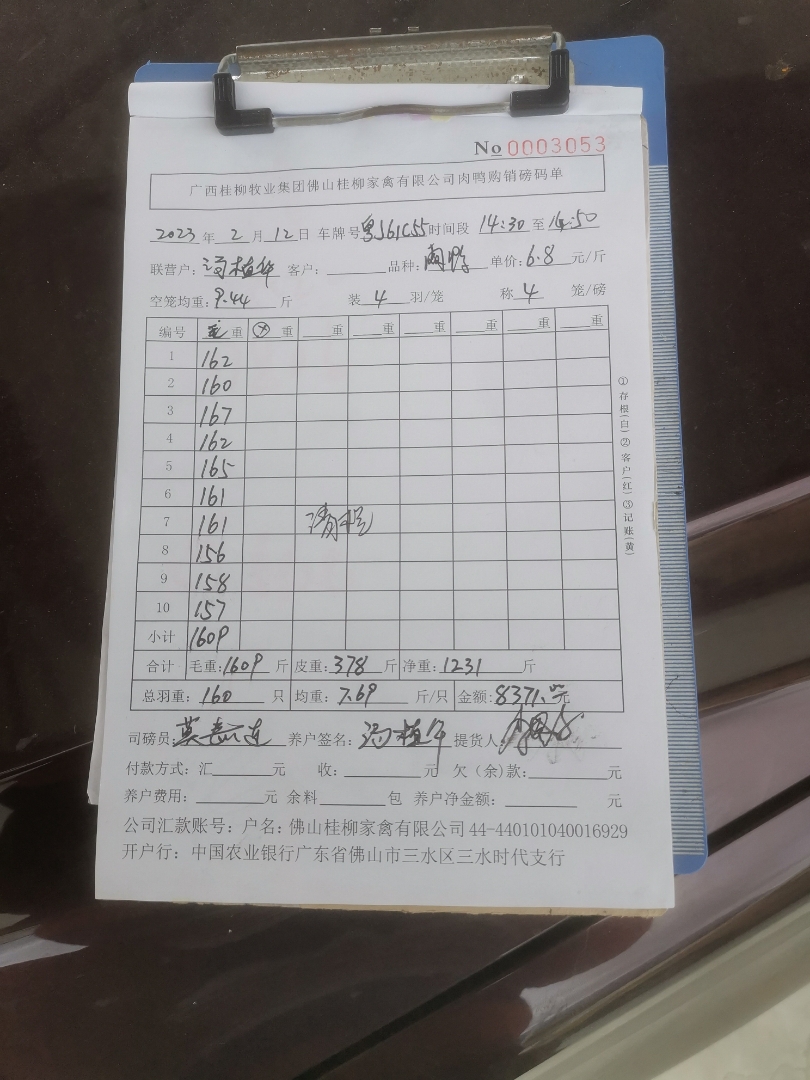 No 0003053
广西桂柳牧业集团佛山桂柳家禽有限公司肉鸭购销磅码单
2023 年 2 月 12 日 车牌号 粤J61C55 时间段 14:30 至 14:50
联营户: 冯植华 客户: 品种: 肉鸭 单价: 6.8 元/斤
空笼均重: 9.44 斤 装 4 羽/笼 称 4 笼/磅
编号 毛重 重 重 重 重 重 重 重
1 162
2 160
3 167
4 162
5 165
6 161
7 161
8 156
9 158
10 157
小计 1609
合计 毛重: 1609 斤 皮重: 378 斤 净重: 1231 斤
总羽重: 160 只 均重: 7.69 斤/只 金额: 8371.00元
司磅员: 养户签名: 冯植华 提货人:
付款方式: 汇 元 收: 元 欠(余)款: 元
养户费用: 元 余料 包 养户净金额: 元
公司汇款账号: 户名: 佛山桂柳家禽有限公司 44-440101040016929
开户行: 中国农业银行广东省佛山市三水区三水时代支行
①存根(白)②客户(红)③记账(黄)